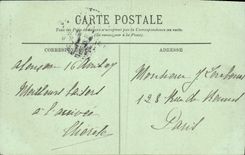 CARTE POSTALE
Tous les Pays étrangers n'acceptent pas la Correspondance au recto
(Se renseigner à la Poste).
CORRESPONDANCE
ADRESSE
Alençon 16
Monsieur
Meilleurs
128 Rue de Rennes
à l'arrivée
Paris